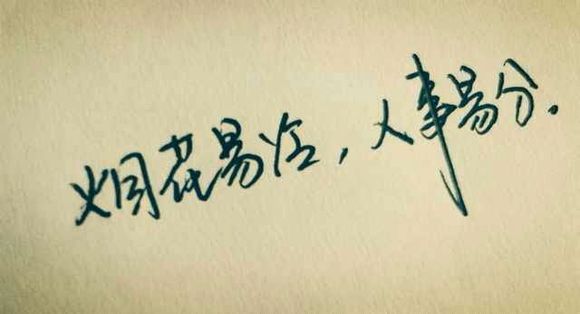 烟花易冷，人事易分.